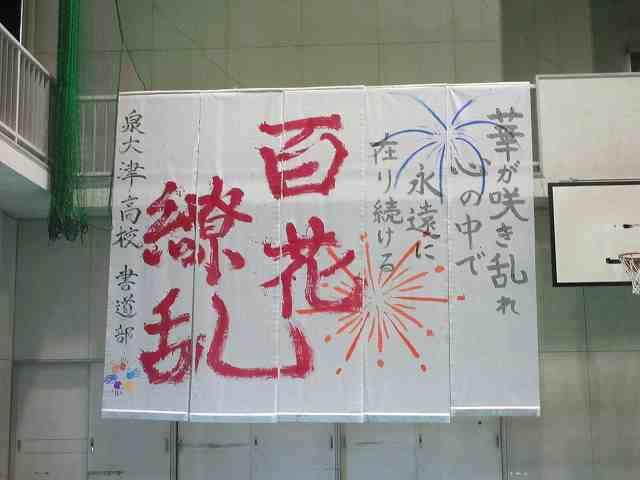 華が咲き乱れ
心の中で
永遠に
在り続ける
百花
繚乱
泉大津高校 書道部